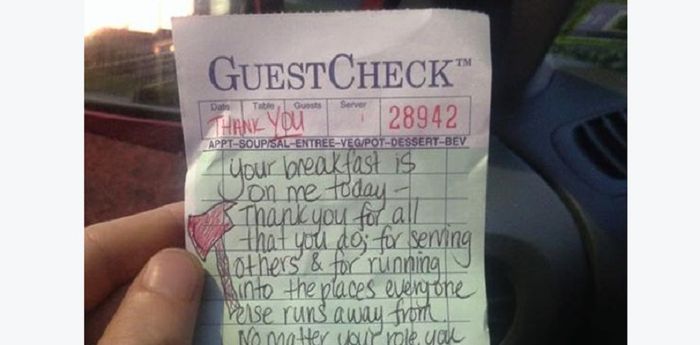 GUESTCHECK™
Date Table Guests Server
THANK YOU 28942
APPT-SOUP/SAL-ENTREE-VEG/POT-DESSERT-BEV
your breakfast is
on me today -
Thank you for all
that you do; for serving
others & for running
into the places everyone
else runs away from.
No matter your role, you